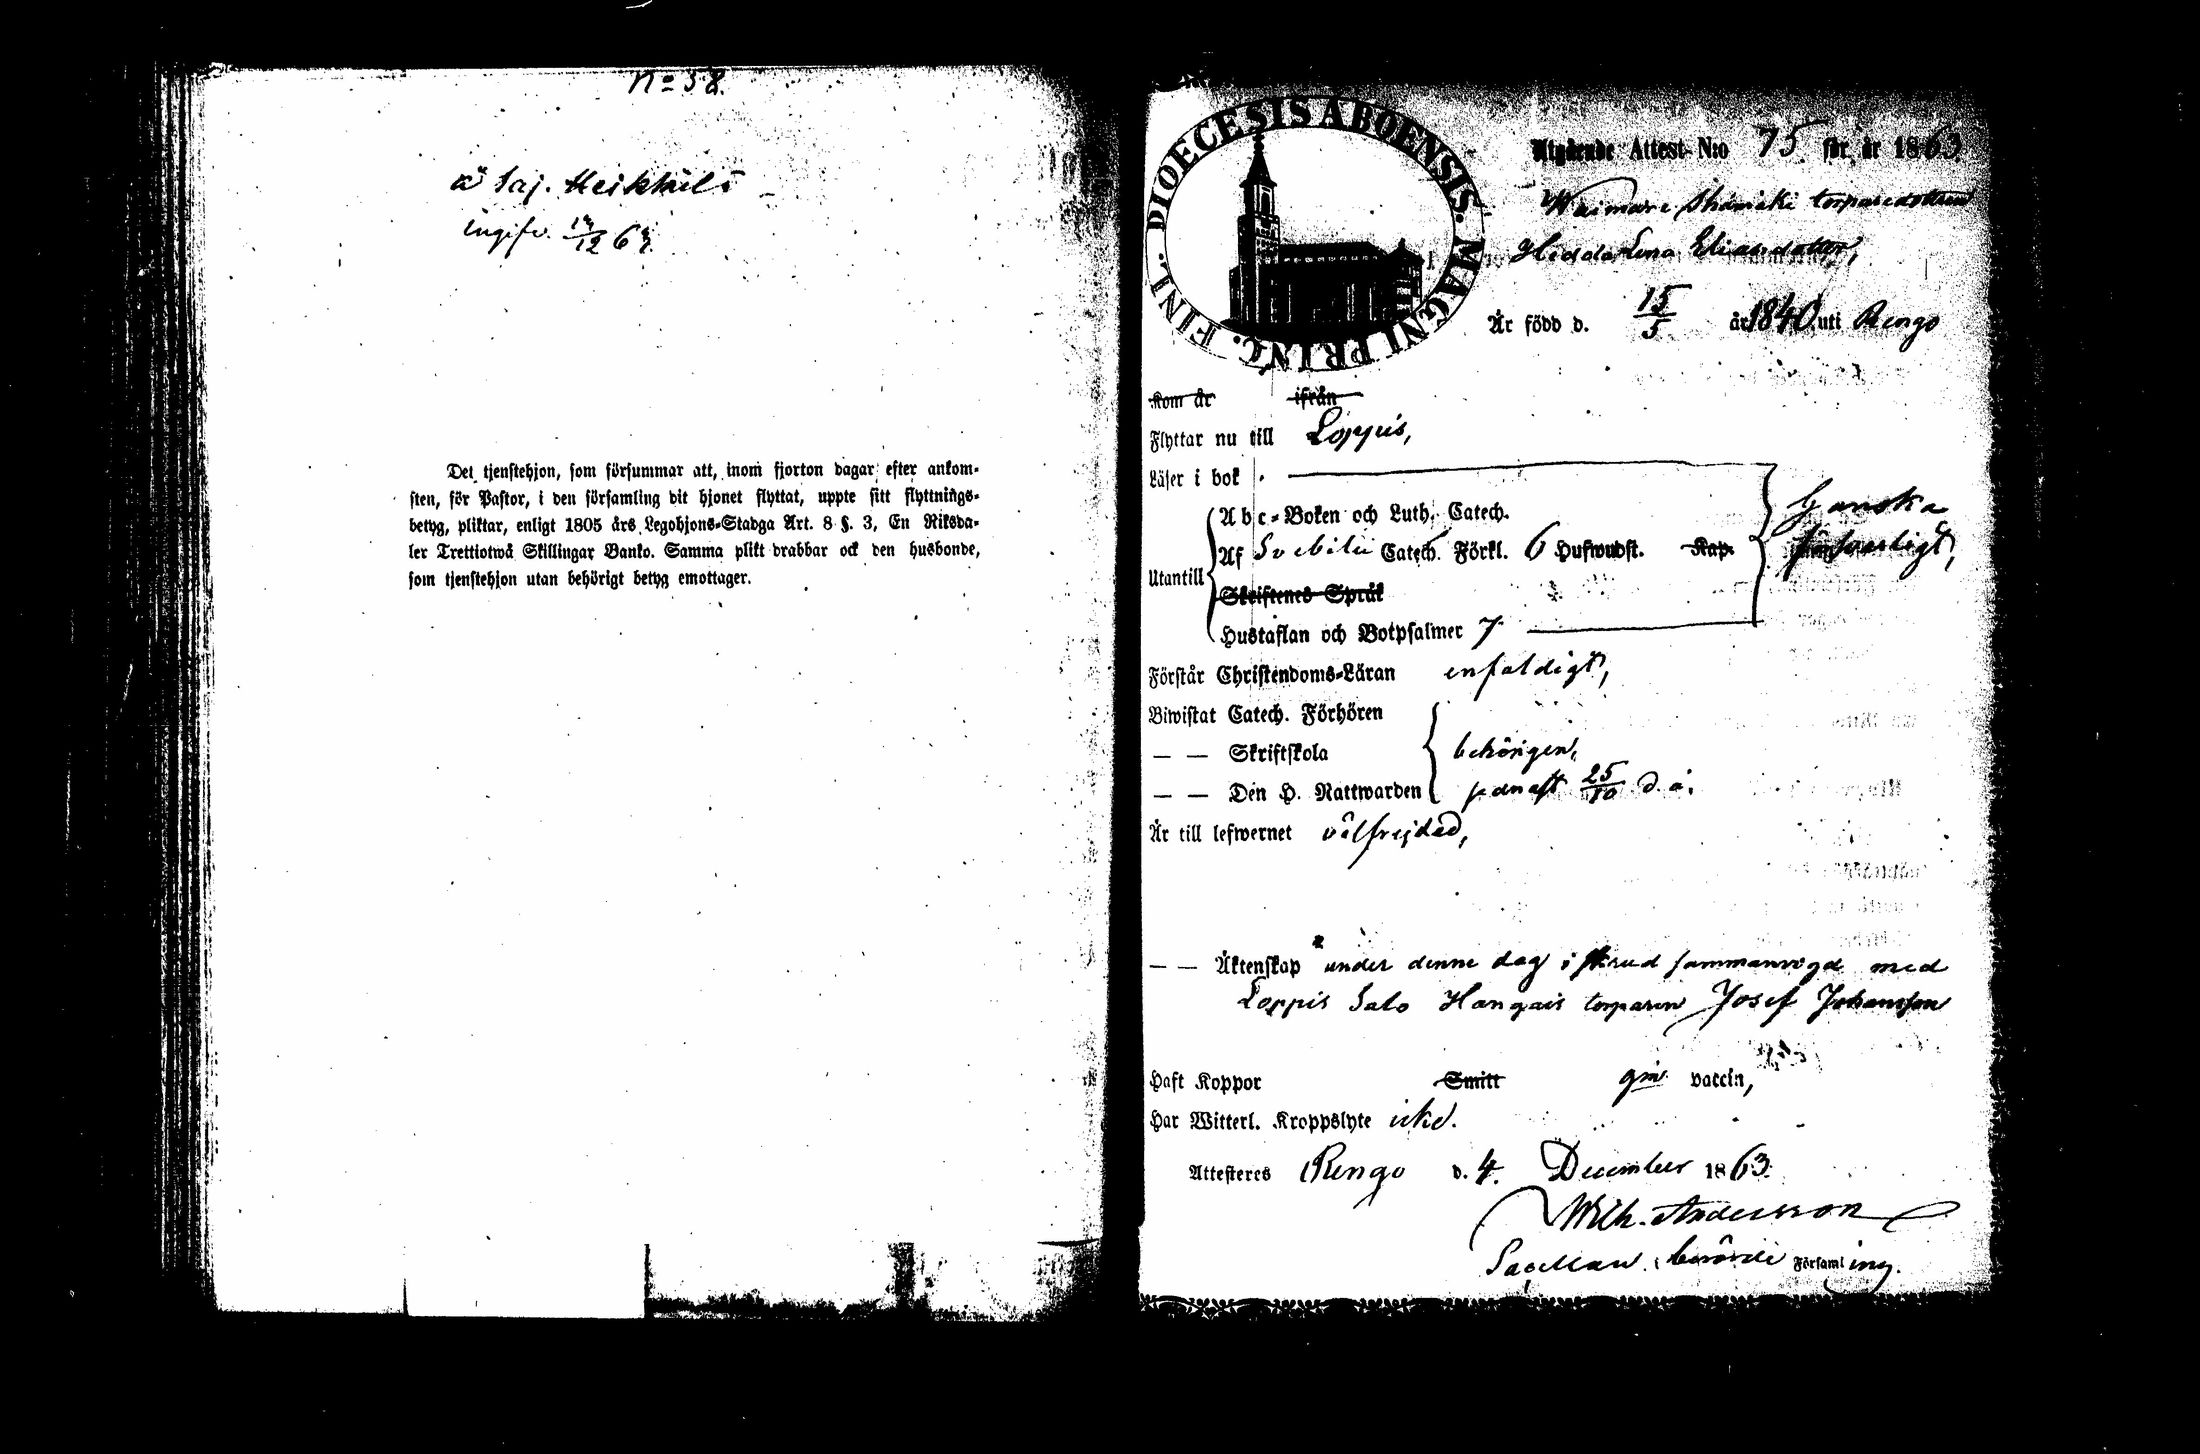 No 58.
å Saj. Heikkilä
ingifv. 12 63.
Det tjenstehjon, som försummar att, inom fjorton dagar efter ankom-
sten, för Pastor, i den församling dit hjonet flyttat, uppte sitt flyttnings-
betyg, pliktar, enligt 1805 års Legohjons-Stadga Art. 8 §. 3, En Riksda-
ler Trettiotwå Skillingar Banko. Samma plikt drabbar ock den husbonde,
som tjenstehjon utan behörigt betyg emottager.
DIOECESIS ABOENSIS. MAGNI PRINC. FINL.
Utgående Attest N:o 75 för år 1863
torparedottren
Hedda Lena Eliasdotter,
Är född d. 15/5 år 1840 uti Rengo
Kom år ifrån
Flyttar nu till Loppis,
Läser i bok
Abc-Boken och Luth. Catech.
Ganska
Af Svebilii Catech. Förkl. 6 Hufwudst. Kap.
försvarligt,
Utantill
Skriftenes Språk
Hustaflan och Botpsalmer 7
Förstår Christendoms-Läran enfaldigt,
Biwistat Catech. Förhören
— — Skriftskola behörigen,
— — Den H. Nattwarden senast 25/10 d. å.
Är till lefwernet välfrejdad,
— — Äktenskap under denne dag i brud sammanvigd med
Loppis Salo Hangais torparen Josef Johansson
Haft Koppor Smitt gm vaccin,
Har Witterl. Kroppslyte icke.
Attesteres Rengo d. 4. December 1863.
Wilh. Andersson
Sacellan. i berörde Församling.